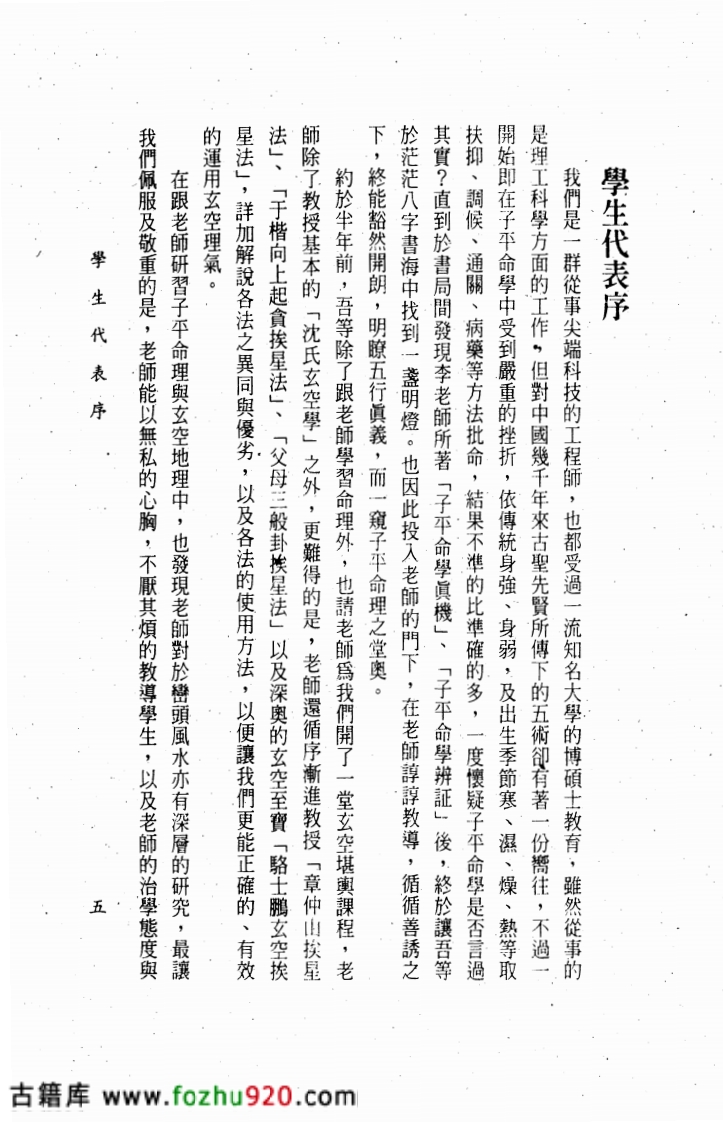 學生代表序
我們是一群從事尖端科技的工程師，也都受過一流知名大學的博碩士教育，雖然從事的
是理工科學方面的工作，但對中國幾千年來古聖先賢所傳下的五術卻有著一份嚮往，不過一
開始即在子平命學中受到嚴重的挫折，依傳統身強、身弱，及出生季節寒、濕、燥、熱等取
扶抑、調候、通關、病藥等方法批命，結果不準的比準確的多，一度懷疑子平命學是否言過
其實？直到於書局間發現李老師所著「子平命學眞機」、「子平命學辨証」後，終於讓吾等
於茫茫八字書海中找到一盞明燈。也因此投入老師的門下，在老師諄諄教導，循循善誘之
下，終能豁然開朗，明瞭五行眞義，而一窺子平命理之堂奧。
約於半年前，吾等除了跟老師學習命理外，也請老師爲我們開了一堂玄空堪輿課程，老
師除了教授基本的「沈氏玄空學」之外，更難得的是，老師還循序漸進教授「章仲山挨星
法」、「于楷向上起貪挨星法」、「父母三般卦挨星法」以及深奧的玄空至寶「駱士鵬玄空挨
星法」，詳加解說各法之異同與優劣，以及各法的使用方法，以便讓我們更能正確的、有效
的運用玄空理氣。
在跟老師研習子平命理與玄空地理中，也發現老師對於巒頭風水亦有深層的研究，最讓
我們佩服及敬重的是，老師能以無私的心胸，不厭其煩的教導學生，以及老師的治學態度與
學生代表序
五
古籍库 www.fozhu920.com